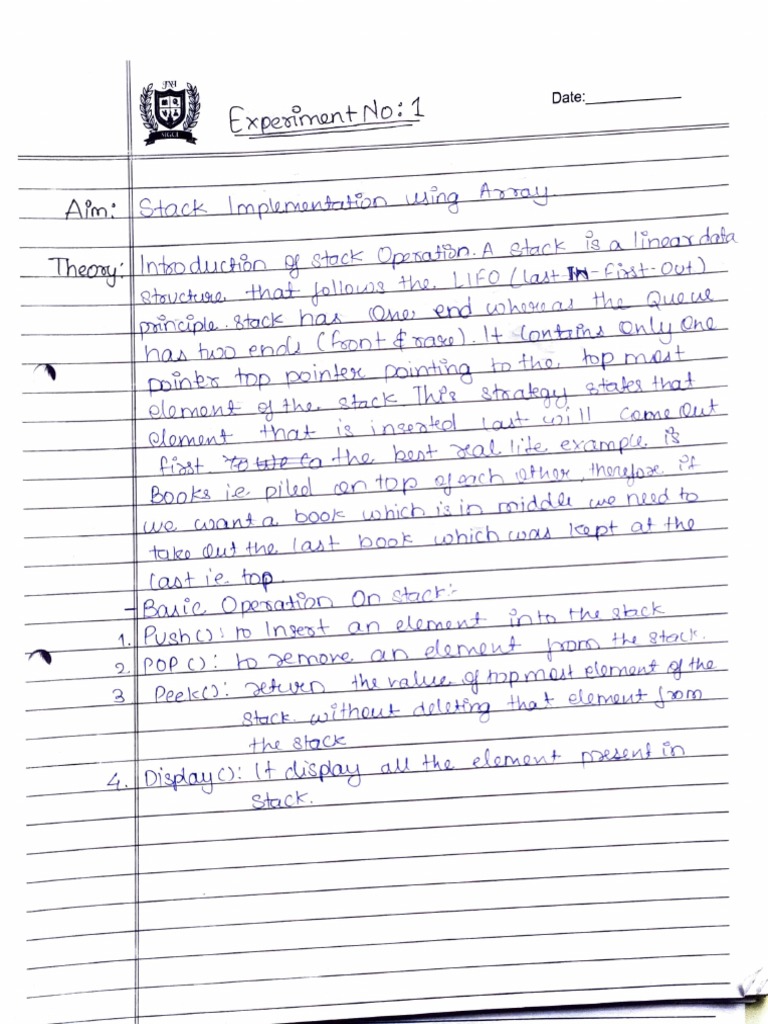 Experiment No: 1
Date:
Aim: Stack Implementation using Array
Theory: Introduction of stack Operation. A stack is a linear data
structure that follows the LIFO (last-IN-first-Out)
principle. Stack has one end whereas the Queue
has two ends (front & rare). It contains Only One
pointer top pointer pointing to the top most
element of the stack. This strategy states that
element that is inserted last will come out
first. the best real life example is
Books i.e. piled on top of each other, therefore if
we want a book which is in middle we need to
take out the last book which was kept at the
last i.e. top.
- Basic Operation On Stack:-
1. Push(): to Insert an element into the stack
2. POP(): to remove an element from the stack.
3 Peek(): return the value of topmost element of the
stack without deleting that element from
the stack
4. Display(): It display all the element present in
Stack.